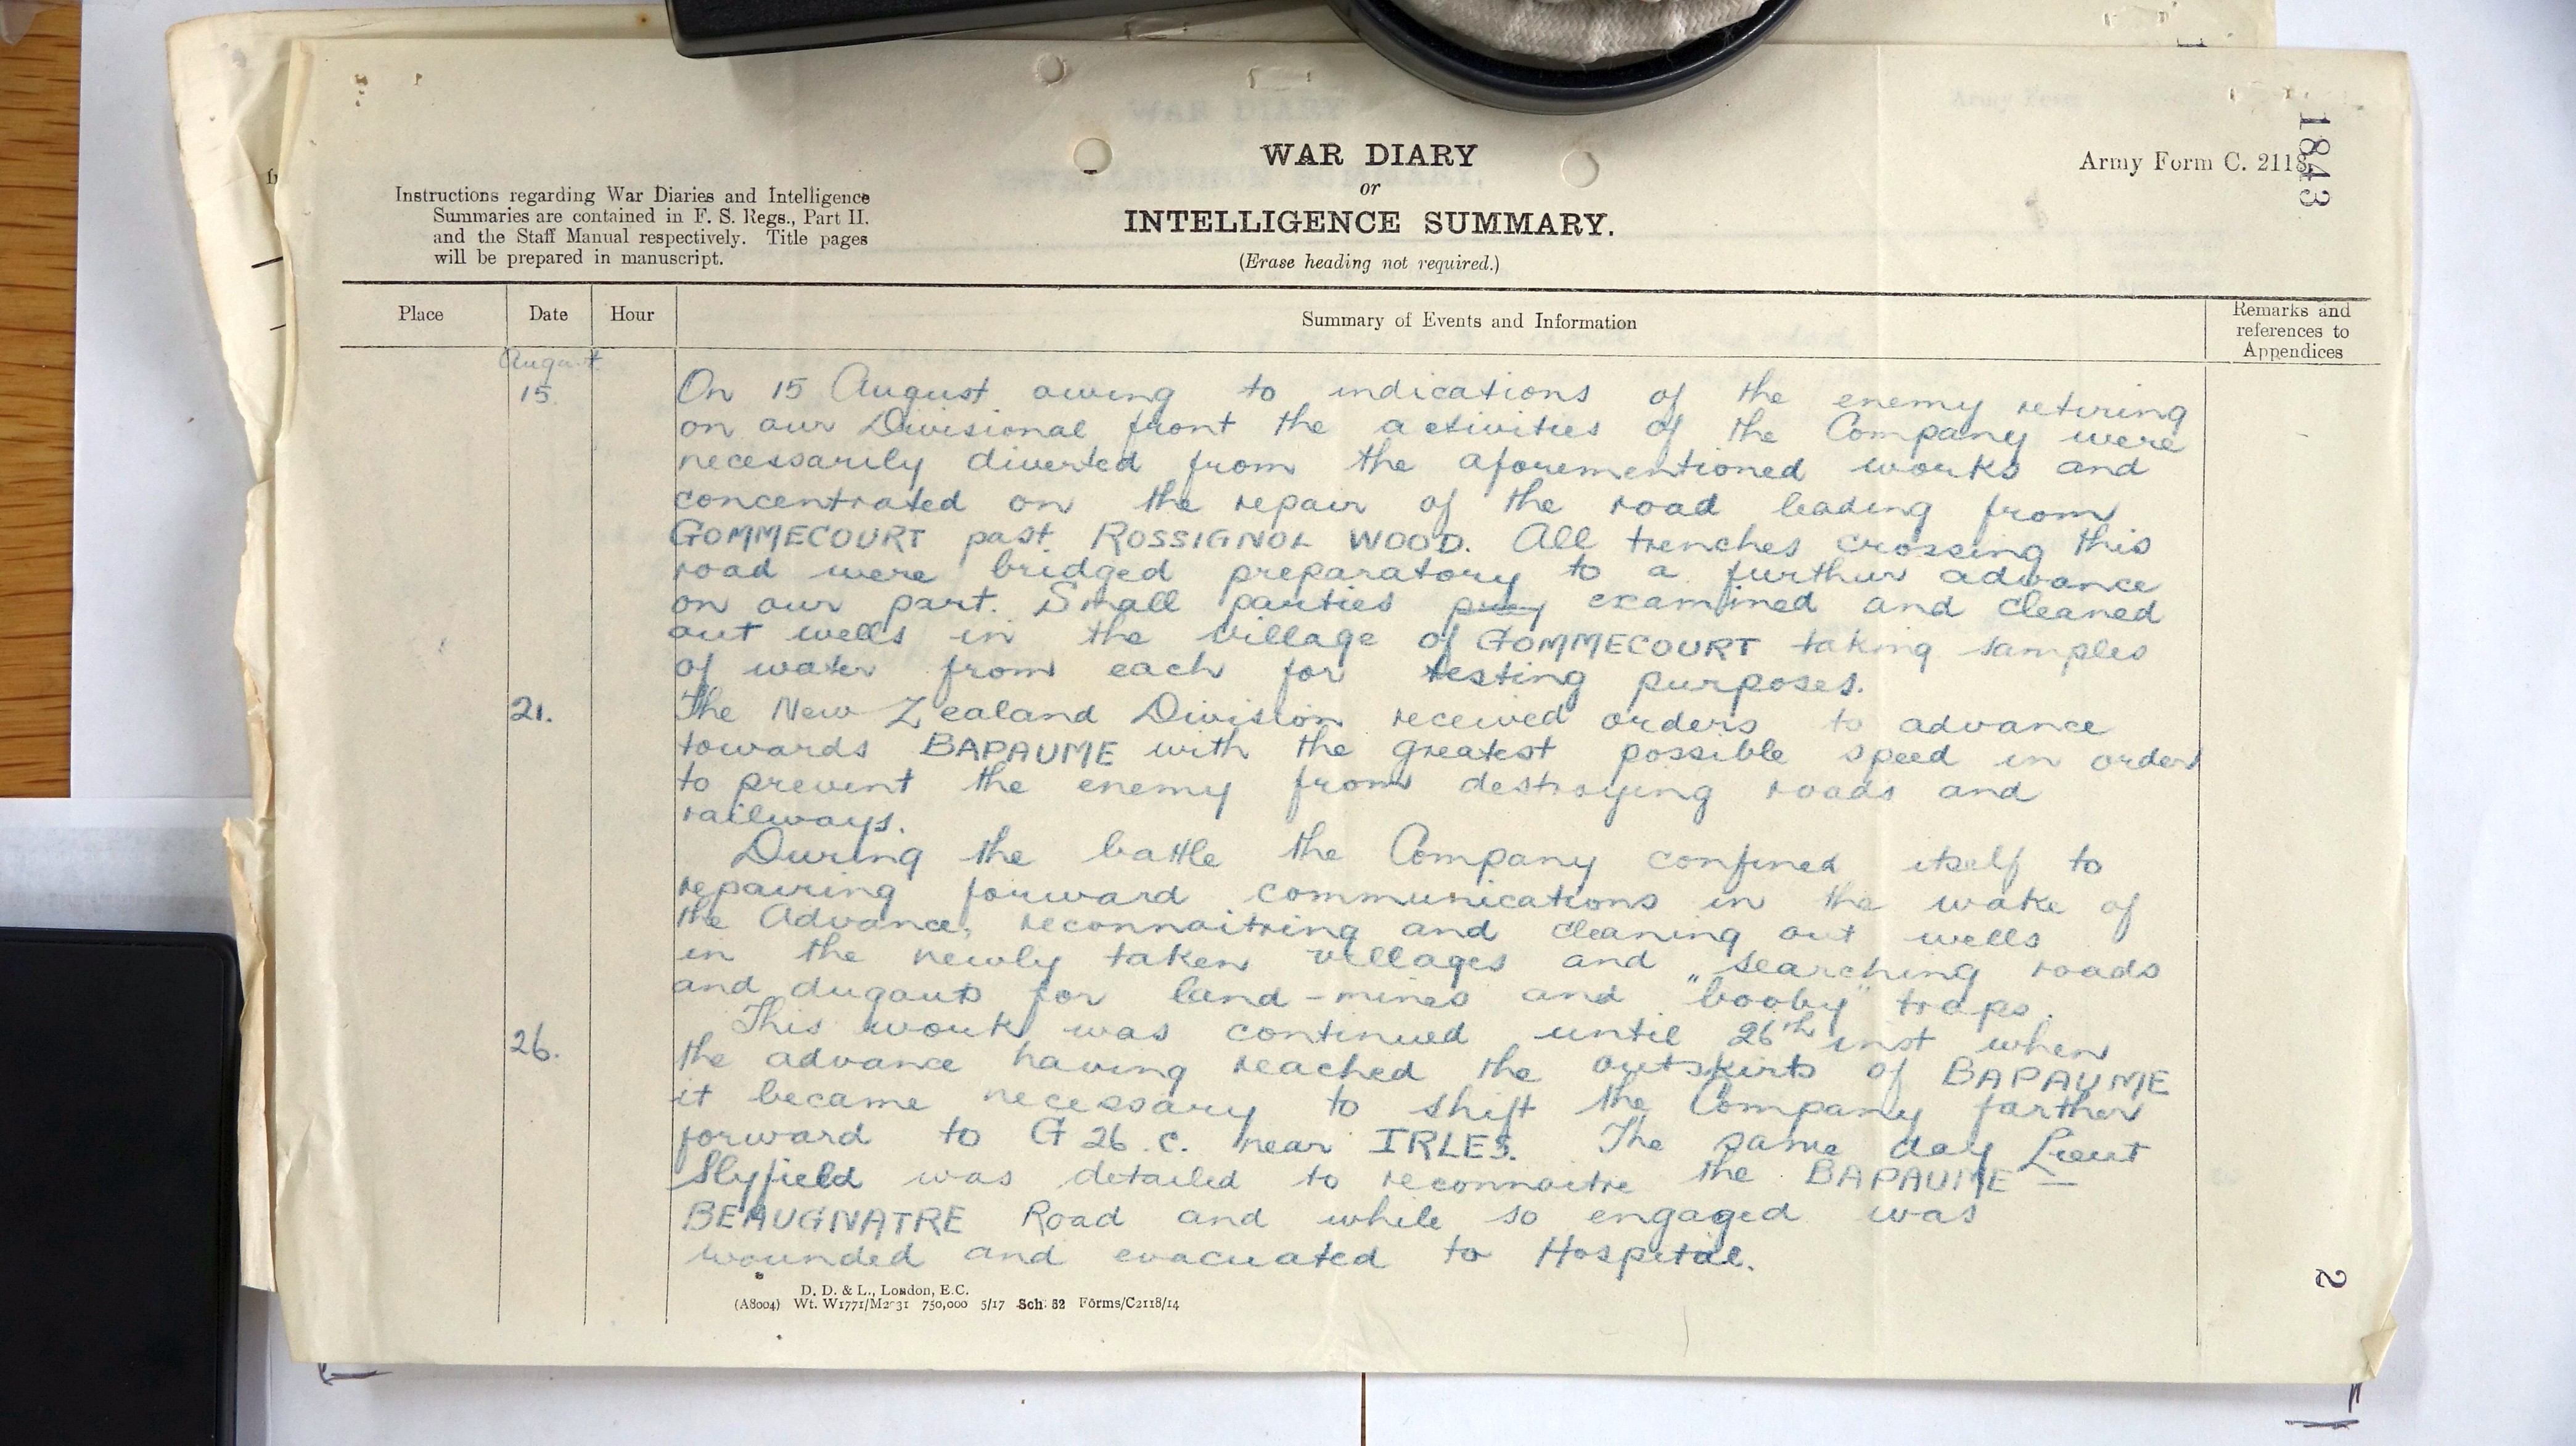 WAR DIARY
or
INTELLIGENCE SUMMARY.
(Erase heading not required.)
Army Form C. 2118
1843
Instructions regarding War Diaries and Intelligence
Summaries are contained in F. S. Regs., Part II.
and the Staff Manual respectively. Title pages
will be prepared in manuscript.
Place Date Hour Summary of Events and Information Remarks and references to Appendices
August
15. On 15 August owing to indications of the enemy retiring
on our Divisional front the activities of the Company were
necessarily diverted from the aforementioned works and
concentrated on the repair of the road leading from
GOMMECOURT past ROSSIGNOL WOOD. All trenches crossing this
road were bridged preparatory to a further advance
on our part. Small parties examined and cleaned
out wells in the village of GOMMECOURT taking samples
of water from each for testing purposes.
21. The New Zealand Division received orders to advance
towards BAPAUME with the greatest possible speed in order
to prevent the enemy from destroying roads and
railways.
During the battle the Company confined itself to
repairing forward communications in the wake of
the Advance, reconnoitring and cleaning out wells
in the newly taken villages and searching roads
and dugouts for land-mines and "booby" traps.
26. This work was continued until 26th inst when
the advance having reached the outskirts of BAPAUME
it became necessary to shift the Company farther
forward to G 26.c. near IRLES. The same day Lieut
Slyfield was detailed to reconnoitre the BAPAUME —
BEAUGNATRE Road and while so engaged was
wounded and evacuated to Hospital.
D. D. & L., London, E.C.
(A8004) Wt. W1771/M2 31 750,000 5/17 Sch. 52 Forms/C2118/14
2